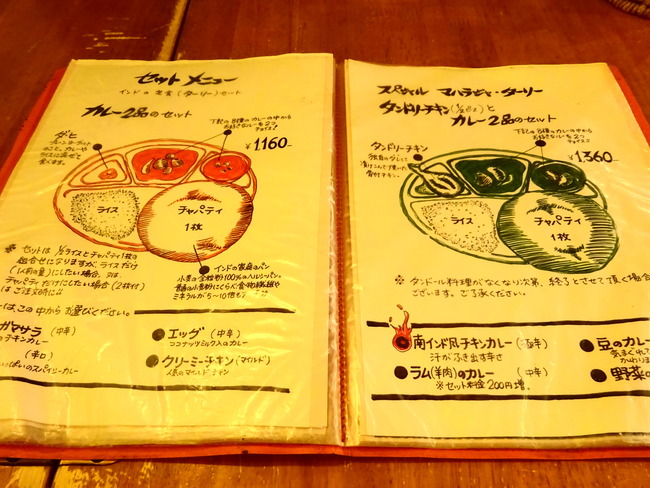 セット メニュー
インドの定食（ターリー）セット
カレー2品のセット
下記の8種のカレーの中から
お好きなルーを2つ
チョイス！
¥1160-
ダヒ
ライスに混ぜて
食べます。
ライス
チャパティ
1枚
インドの家庭のパン
小麦の全粒粉100%のヘルシーパン。
ミネラルが5〜10倍も！
※ セットは、½ライスとチャパティ1枚の
組合せになりますが、ライスだけ
(1人前の量)にしたい場合、又は、
チャパティだけにしたい場合(2枚付)
はご注文時に!!
ーは、この中から お選びください。
ガマサラ (中辛)
のチキンカレー
辛口
いっぱいのスパイシーカレー
エッグ (中辛)
ココナッツミルク入のカレー
クリーミーチキン(マイルド)
人気のマイルドチキン
スペシャル マハラジャ・ターリー
タンドリーチキン と
カレー2品のセット
下記の8種のカレーの中から
お好きなルーを2つ
チョイス
¥1360-
タンドリーチキン
骨付チキン。
ライス
チャパティ
1枚
※ タンドール料理がなくなり次第、終了とさせて頂く場合が
ございます。ご了承ください。
南インド風チキンカレー
汗がふき出す辛さ
ラム(羊肉)のカレー (中辛)
※セット料金200円増。
豆のカレー
野菜の